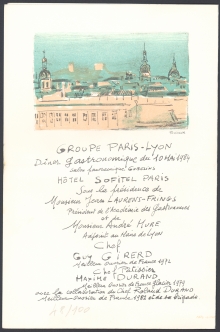 GROUPE PARIS-LYON
Dîner Gastronomique du 10 MAI 1984
HÔTEL SOFITEL PARIS
Sous la présidence de
Monsieur Jean LAURENS-FRINGS
Président de l'Académie des Gastronomes
et de
Monsieur André MURE
Adjoint au Maire de LYON
Chef
GUY GIRERD
Meilleur Ouvrier de France 1972
Chef Pâtissier
MAXIME DURAND
Meilleur Ouvrier de France 1979
avec la collaboration de Chef Roland DURAND
Meilleur Ouvrier de France 1982 et de sa Brigade